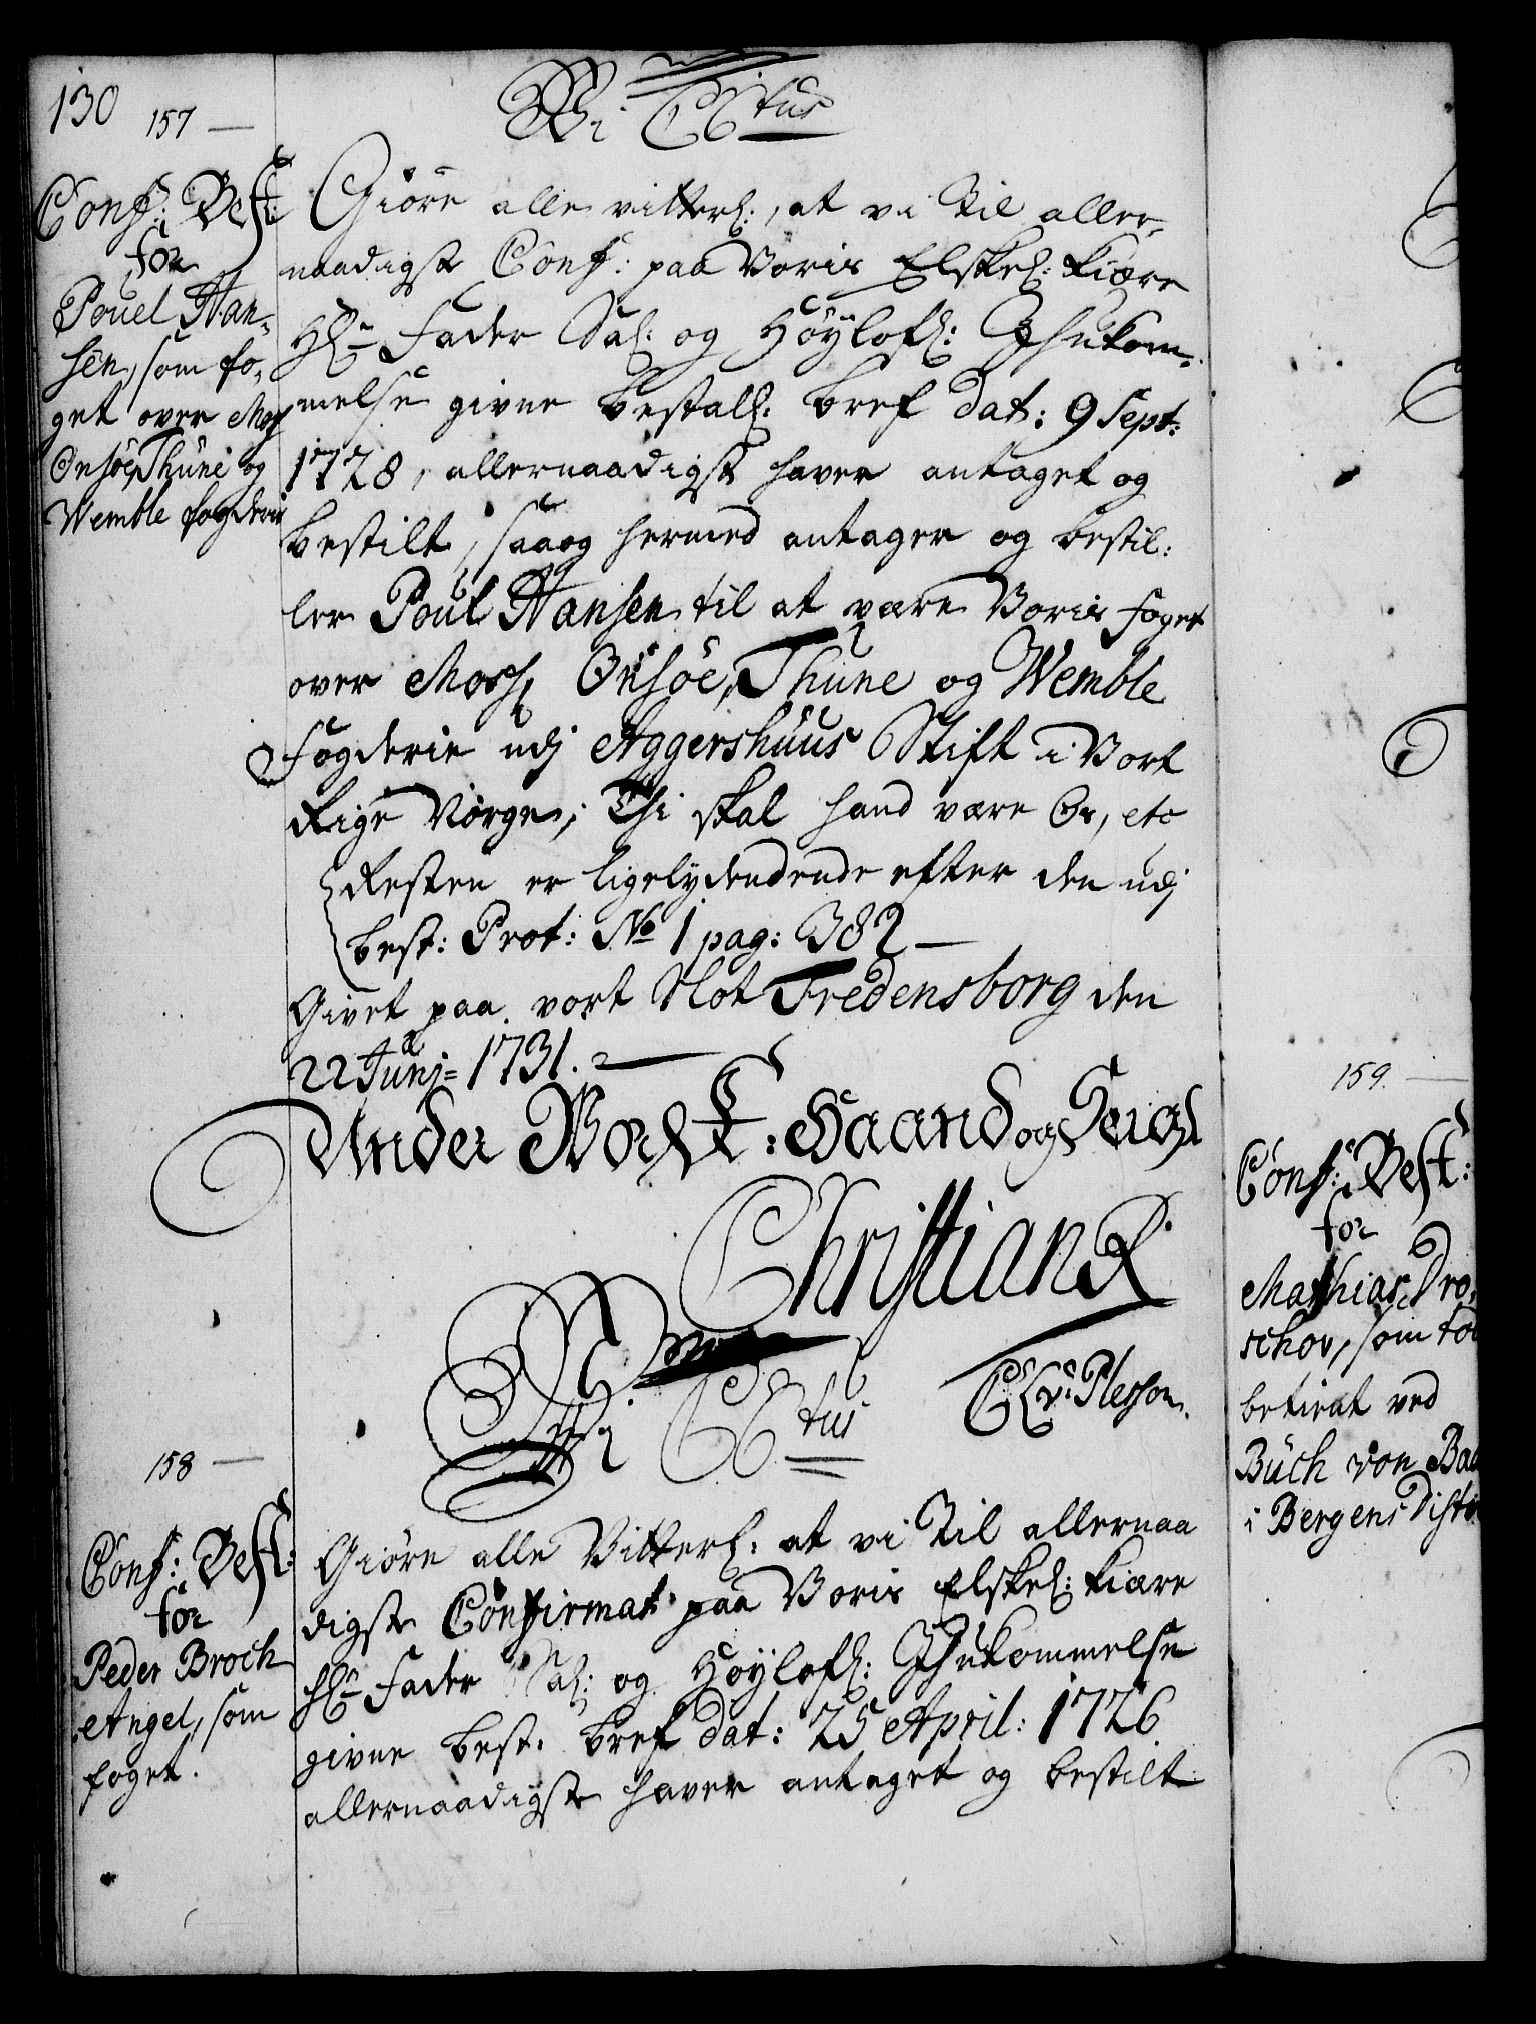 130
157
Wi C 6tus
Conf: Best:
for
Pouel Han-
sen, som fo-
get over Moss
Onsöe, Thune og
Wemble fogderie
Giöre alle vitterl:, at vi Til aller-
naadigste Conf: paa Voris Elskel: kiære
Hr Fader Sal: og Höylofl: Ihukom-
melse givne bestall: bref dat: 9 Sept:
1728, allernaadigst haver antaget og
bestilt, saaog hermed antager og bestil:
ler Poul Hansen til at være Voris foget
over Moss, Onsöe, Thune og Wemble
Fogderie udj Aggershuus Stift i Vort
Rige Norge; Thi skal hand være Os, etc
Resten er ligelydendende efter den udj
best: Prot: No 1 pag: 382
Givet paa vort Slot Fredensborg den
22 Junj= 1731.
Under Vor K: Haand og Seigl
Christian R.
C: A: v: Plesson.
Wi C 6tus
158
Conf: Best:
for
Peder Broch
Angel, som
foget.
Giöre alle Vitterl: at vi Til allernaa
digste Confirmat: paa Voris Elskel: kiære
Hr Fader Sal: og Höylofl: Ihukommelse
givne best: bref dat: 25 April: 1726
allernaadigst haver antaget og bestilt
159.
Conf: Best:
for
Mathias Dro-
schov, som
betient ved
Buch von
i Bergens